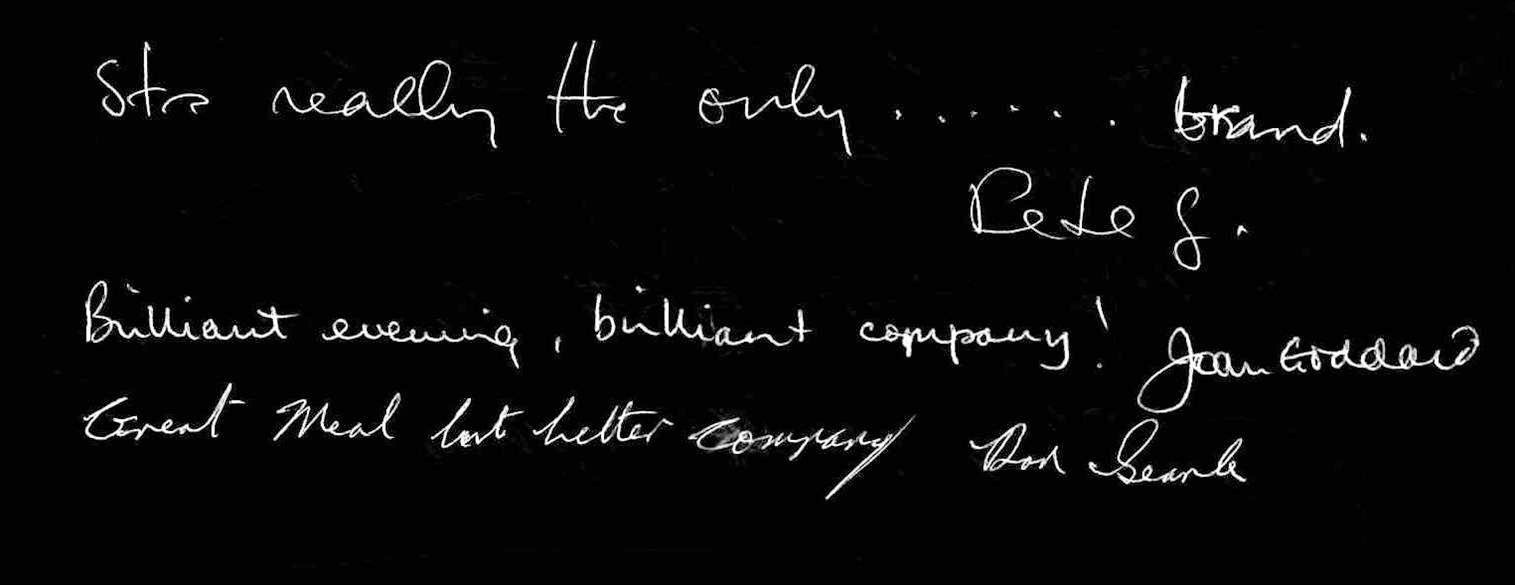 really the only ...... brand.
Pete G.
Brilliant evening, brilliant company! Joan Goddard
Great Meal but better company Ron Searle